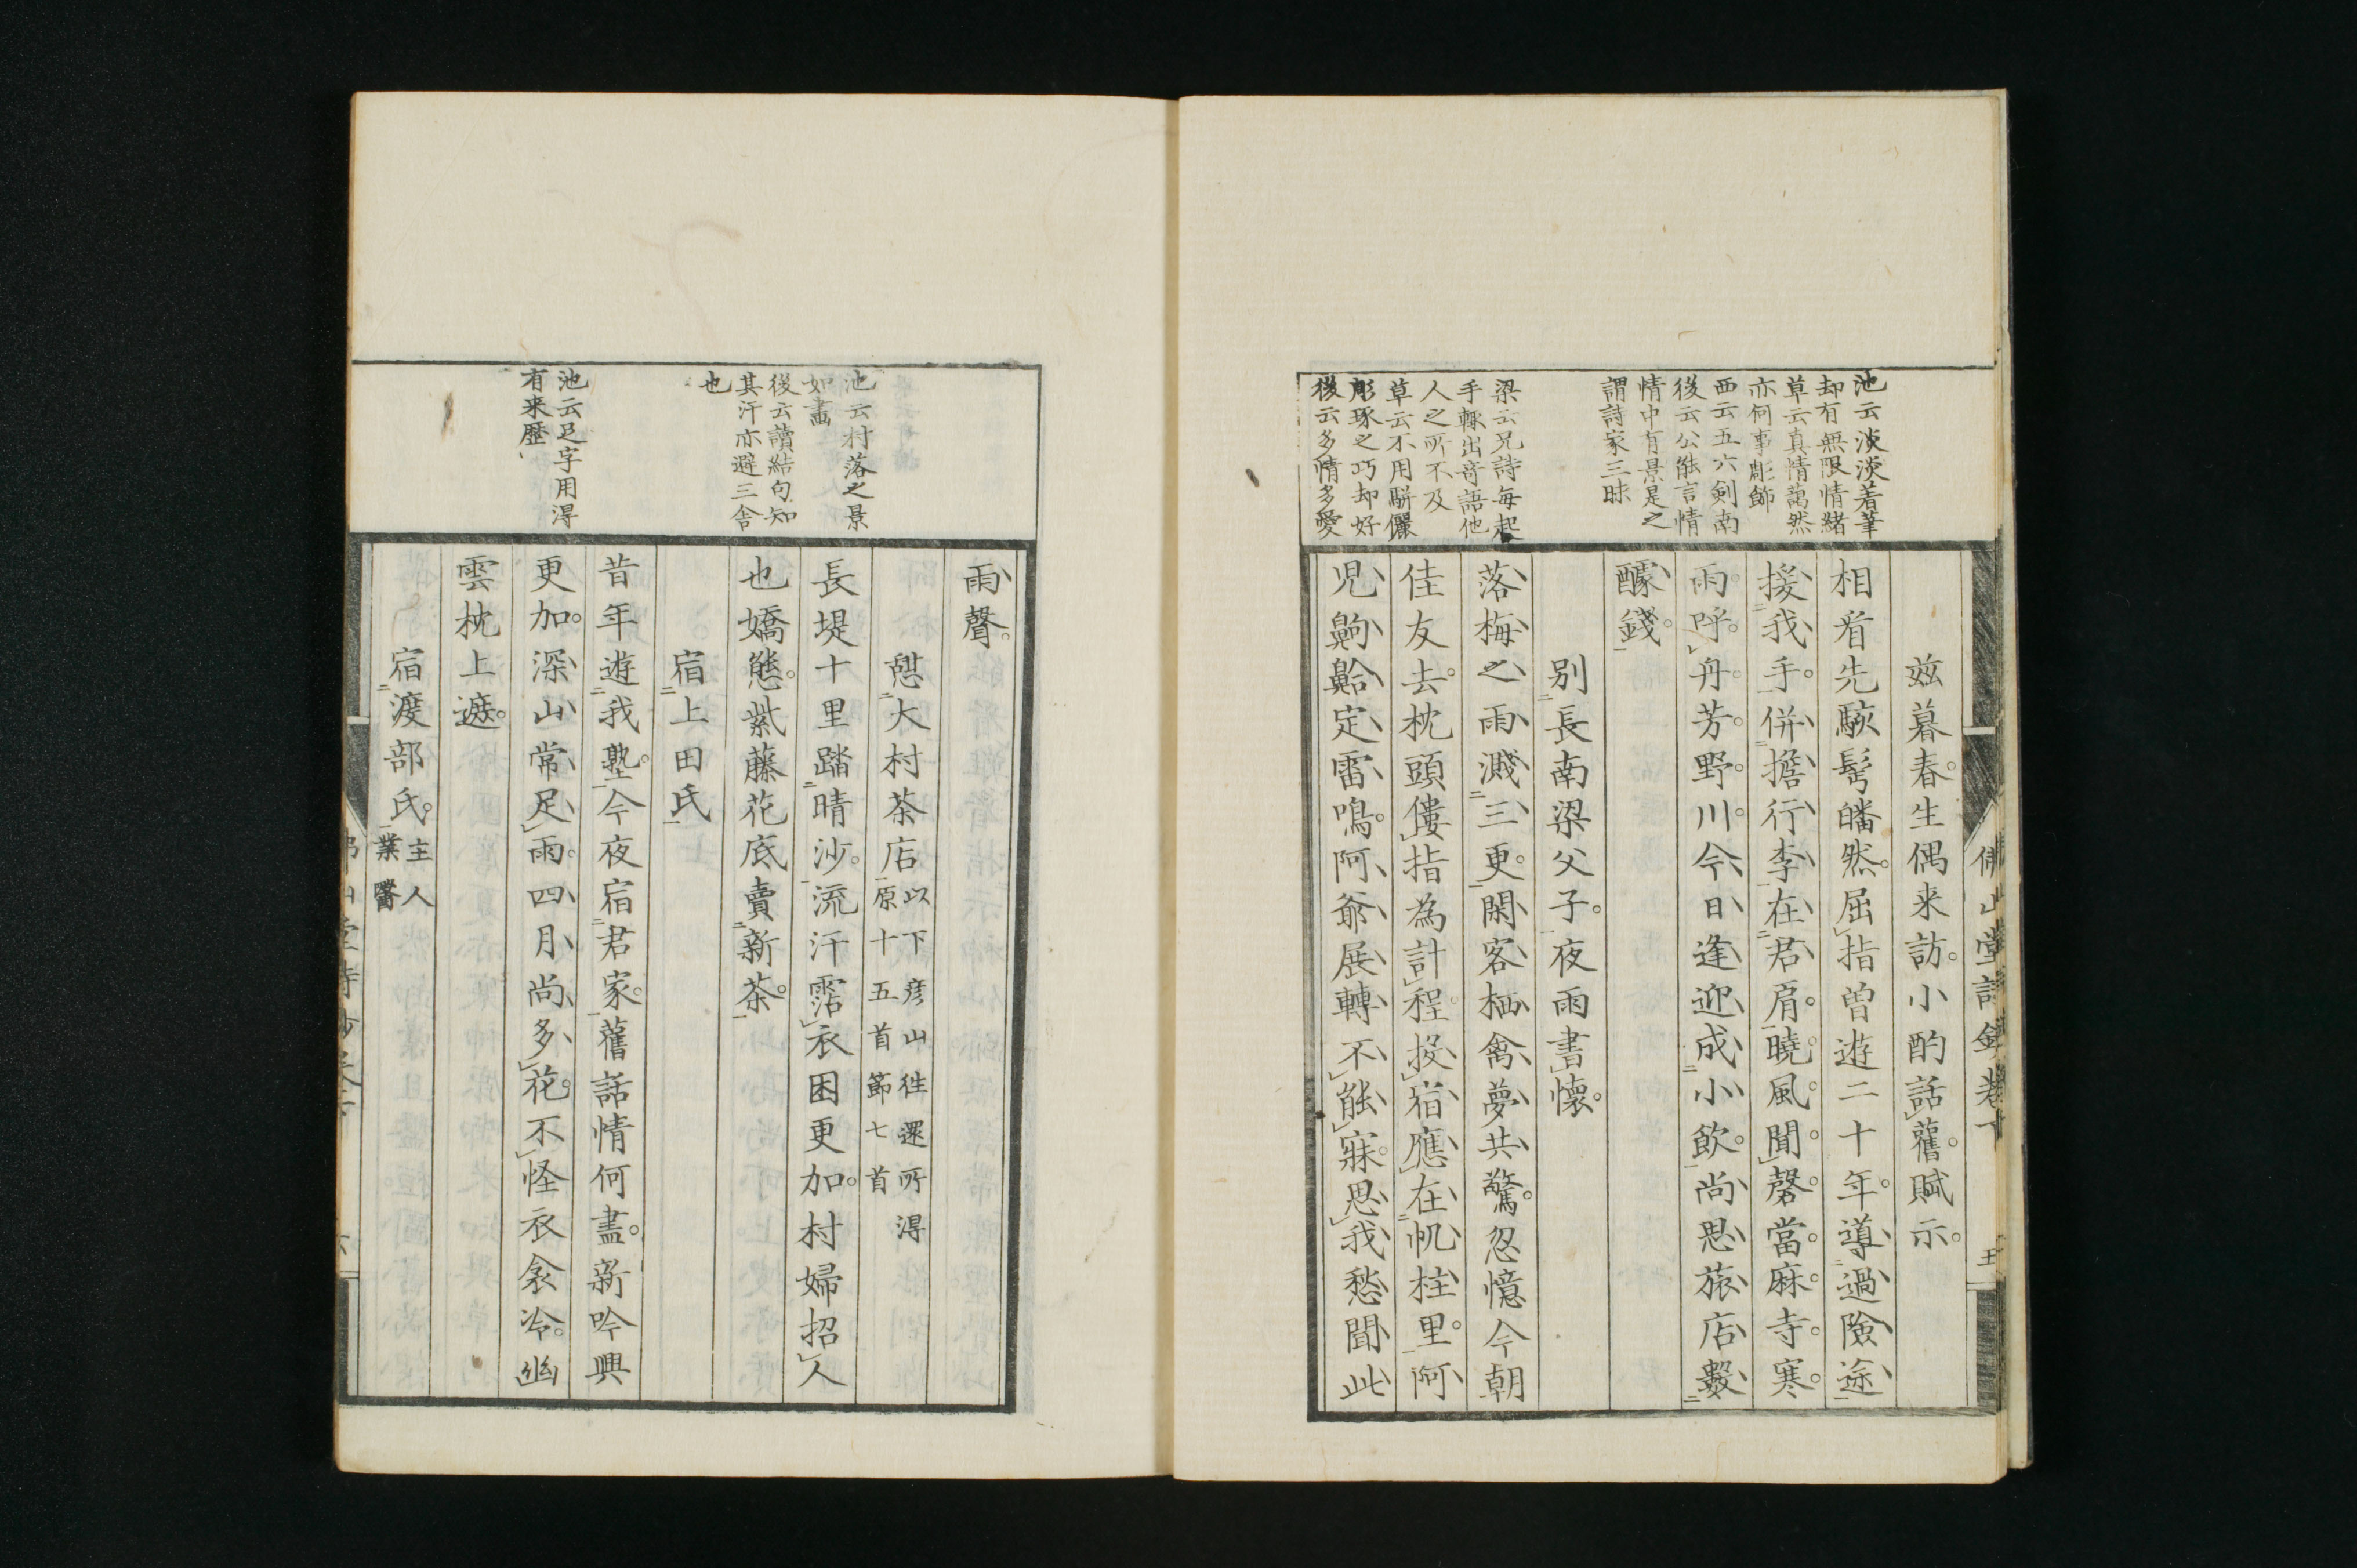 池云淡淡着筆
却有無限情緒
草云真情藹然
亦何事彫飾
西云五六剣南
後云公能言情
情中有景是之
謂詩家三昧
梁云兄詩每起
手輙出奇語他
人之所不及
草云不用駢儷
彫琢之巧却好
後云多情多愛
佛山堂詩鈔卷下
五
玆暮春生偶来訪小酌話舊賦示
相看先駭髩皤然屈指曽遊二十年導過險途
援我手併擔行李在君肩曉風聞磬當麻寺寒
雨呼舟芳野川今日逢迎成小飲尚思旅店數
醵錢
別長南梁父子夜雨書懐
落梅之雨濺三更閑客栖禽夢共驚忽憶今朝
佳友去枕頭僂指為計程投宿應在帆柱里阿
児齁鼾定雷鳴阿爺展轉不能寐思我愁聞此
池云村落之景
如畵
後云讀結句知
其汗亦避三舎
也
池云足字用淂
有来歷
雨聲
憇大村茶店以下彦山往還所淂
原十五首節七首
長堤十里踏晴沙流汗霑衣困更加村婦招人
也嬌態紫藤花底賣新茶
宿上田氏
昔年遊我塾今夜宿君家舊話情何盡新吟興
更加深山常足雨四月尚多花不怪衣衾冷幽
雲枕上遮
宿渡部氏主人
業醫